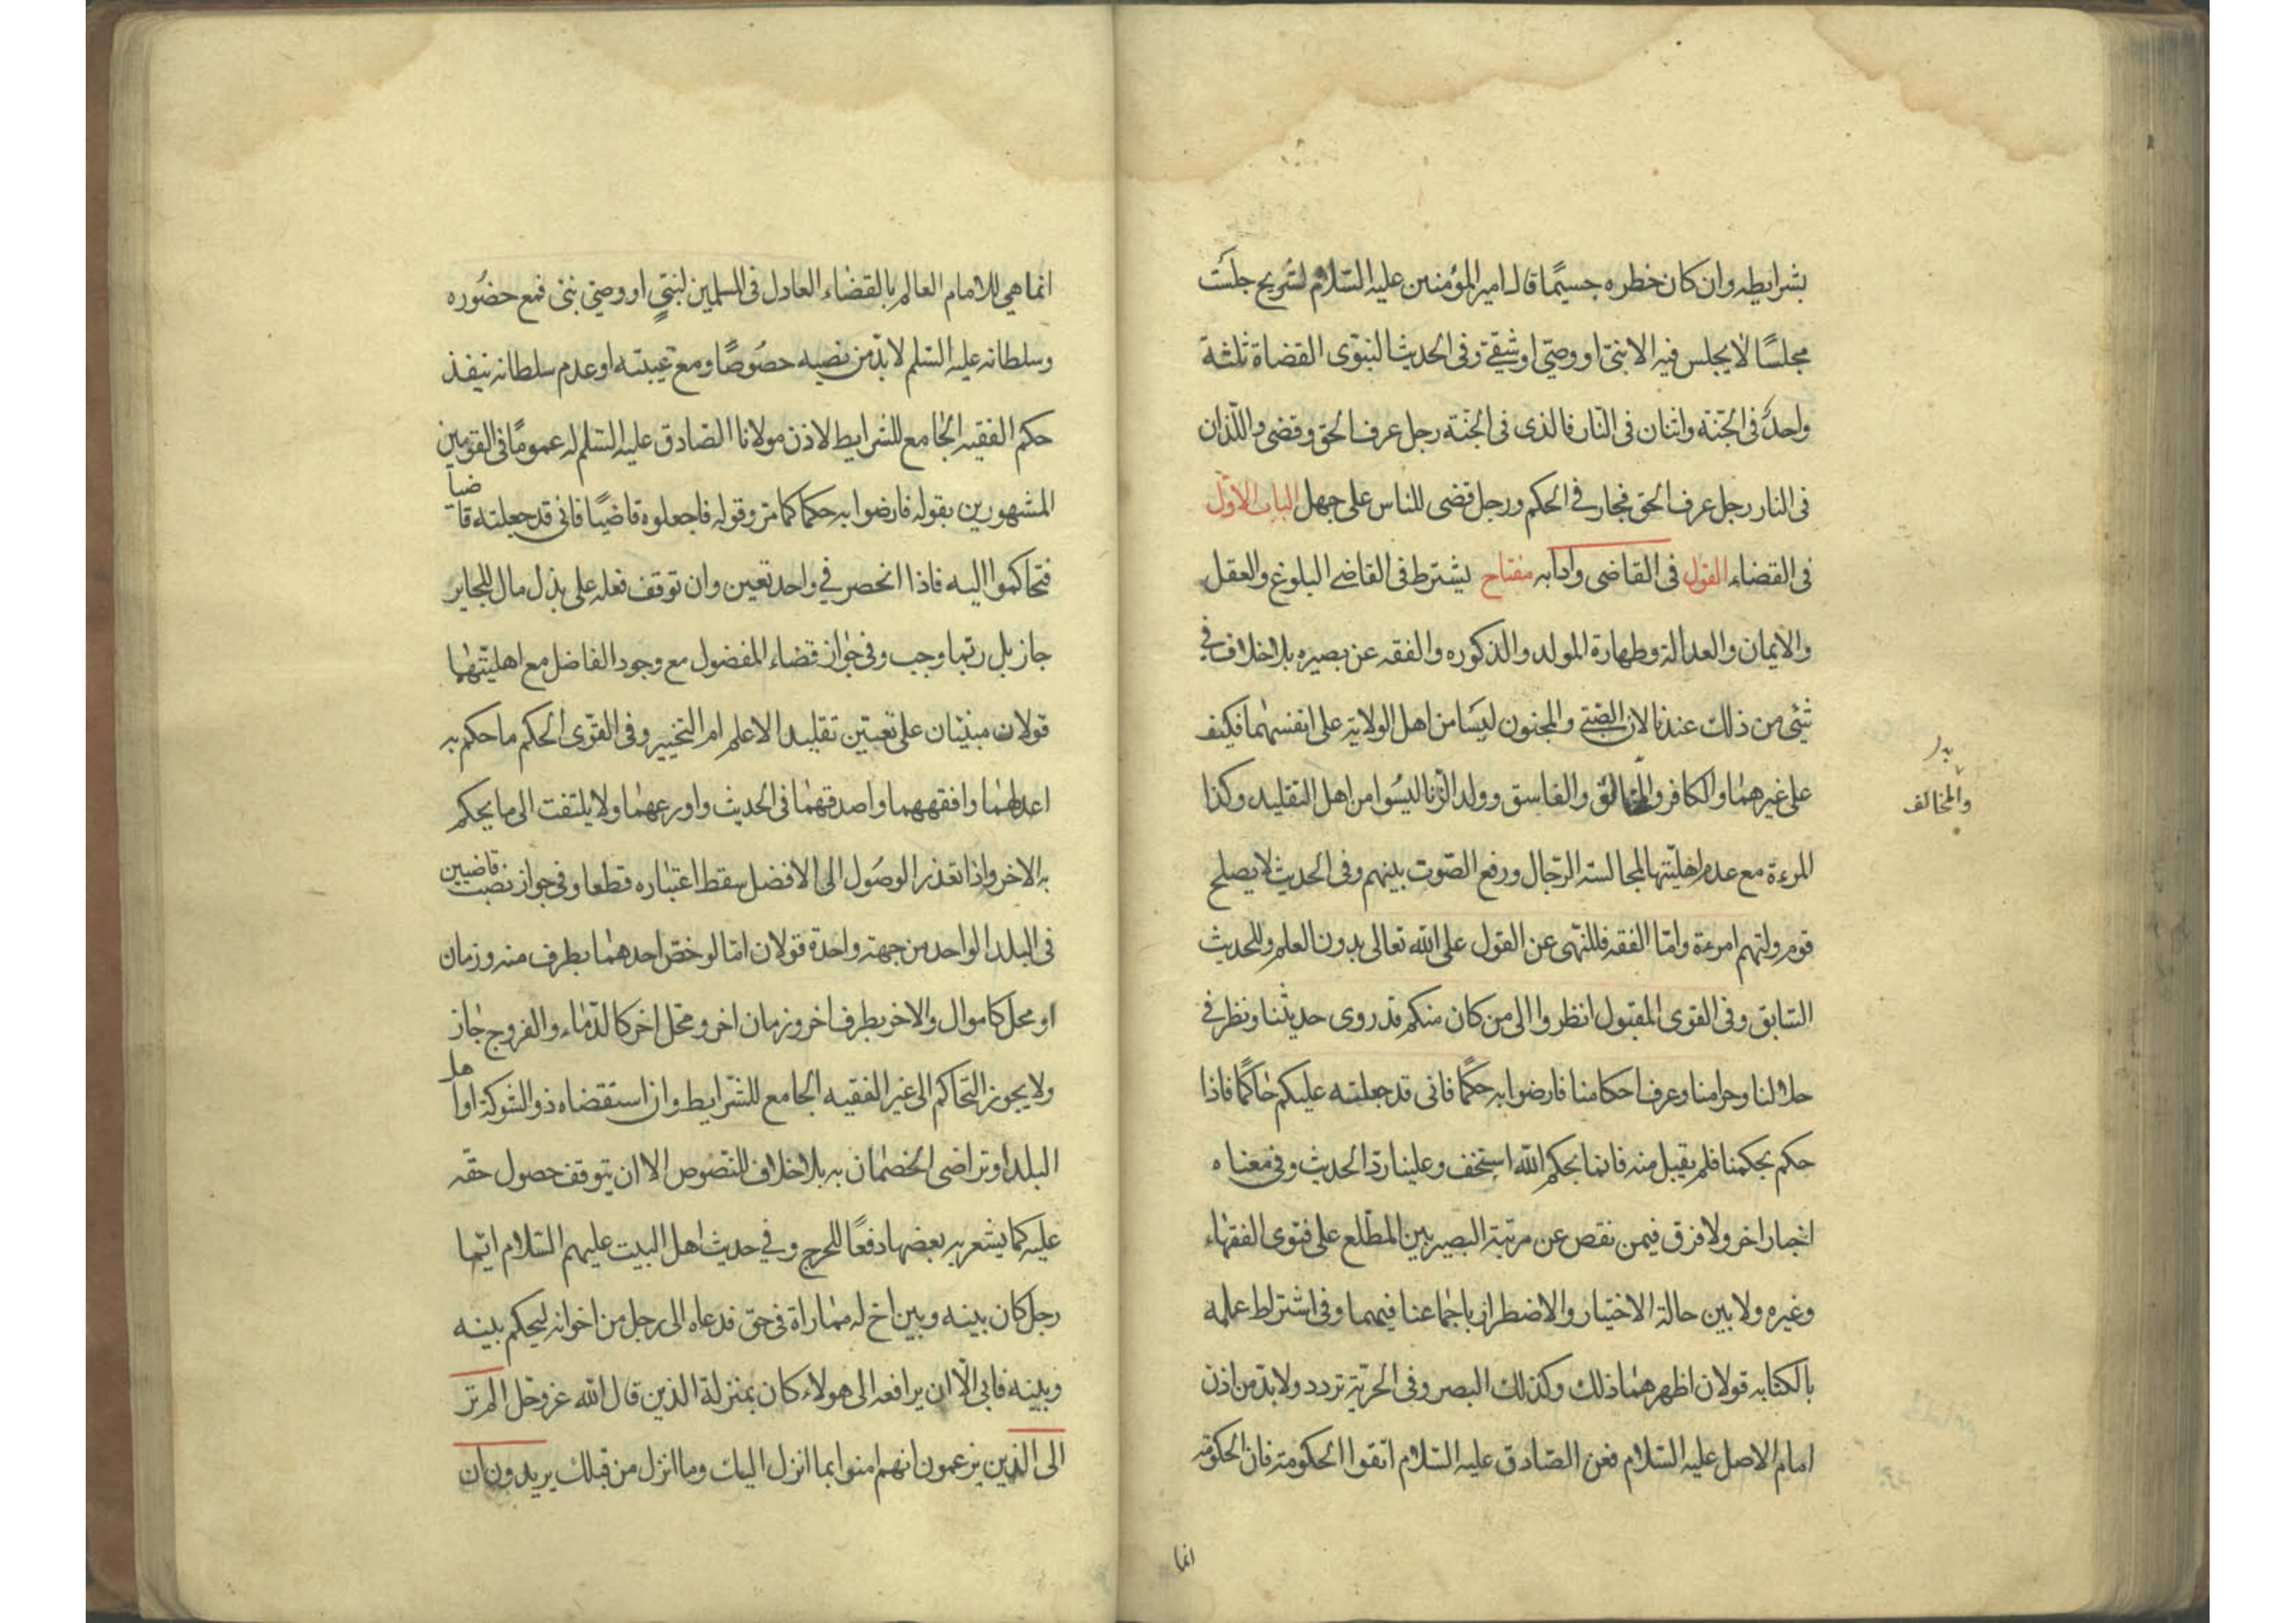 بشرايطه وان كان خطره جسيمًا قال امير المؤمنين عليه السّلام لشريح جلست
مجلسًا لا يجلس فيه الا نبى او وصىّ او شقى وفى الحديث النبوى القضاة ثلثة
واحدٌ فى الجنّة واثنان فى النّار فالذى فى الجنّة رجل عرف الحق وقضى به واللّذان
فى النار رجل عرف الحق فجار فى الحكم ورجل قضى للناس على جهل الباب الاوّل
فى القضاء القول فى القاضى وادابه مفتاح يشترط فى القاضى البلوغ والعقل
والايمان والعدالة وطهارة المولد والذكوره والفقه عن بصيره بلا خلاف فى
شئ من ذلك عندنا لان الصّبى والمجنون ليسا من اهل الولاية على انفسهما فكيف
على غيرهما والكافر والفاسق وولد الزّنا ليسوا من اهل التقليد وكذا
والمخالف
المرءة مع عدم اهليّتها لمجالسة الرّجال ورفع الصّوت بينهم وفى الحديث لا يصلح
قوم ولتهم امرءة وامّا الفقه فللنّهى عن القول على الله تعالى بدون العلم وللحديث
السّابق وفى القوى المقبول انظروا الى من كان منكم قد روى حديثنا ونظر فى
حلالنا وحرامنا وعرف احكامنا فارضوا به حكمًا فانى قد جعلته عليكم حاكمًا فاذا
حكم بحكمنا فلم يقبل منه فانما بحكم الله استخف وعلينا ردّ الحديث وفى معناه
اخبار اخر ولا فرق فيمن نقص عن مرتبة البصير بين المطّلع على فتوى الفقهاء
وغيره ولا بين حالة الاختيار والاضطرار باجماعنا فيهما وفى اشتراط علمه
بالكتابه قولان اظهرهما ذلك وكذلك البصر وفى الحريّة تردد ولا بدّ من اذن
امام الاصل عليه السّلام فعن الصّادق عليه السّلام اتّقوا الحكومة فان الحكومة
انما
انما هى للامام العالم بالقضاء العادل فى المسلمين لنبىّ او وصىّ نبى فمع حضوره
وسلطانه عليه السّلم لا بدّ من نصبه خصوصًا ومع غيبته او عدم سلطانه ينفذ
حكم الفقيه الجامع للشرايط لاذن مولانا الصّادق عليه السّلم له عمومًا فى القويين
المشهورين بقوله فارضوا به حكما كما مرّ وقوله فاجعلوه قاضيًا فانى قد جعلته قاضيا
فتحاكموا اليه فاذا انحصر فى واحد تعين وان توقف فعله على بذل مال للجاير
جاز بل ربّما وجب وفى جواز قضاء المفضول مع وجود الفاضل مع اهليّتهما
قولان مبنيّان على تعيين تقليد الاعلم ام التخيير وفى القوى الحكم ما حكم به
اعدلهما وافقههما واصدقهما فى الحديث واورعهما ولا يلتفت الى ما يحكم
به الاخر واذا تعذر الوصول الى الافضل سقط اعتباره قطعا وفى جواز نصب قاضيين
فى البلد الواحد من جهة واحدة قولان امّا لو خصّ احدهما بطرف منه وزمان
او محل كاموال والاخر بطرف اخر وزمان اخر ومحلّ اخر كالدّماء والفروج جاز
ولا يجوز التّحاكم الى غير الفقيه الجامع للشّرايط وان استقضاه ذو الشوكة او اهل
البلد او تراضى الخصمان به بلا خلاف للنّصوص الا ان يتوقف حصول حقّه
عليه كما يشعر به بعضها دفعًا للحرج وفى حديث اهل البيت عليهم السّلام ايّما
رجل كان بينه وبين اخ له مماراة فى حقّ فدعاه الى رجل من اخوانه ليحكم بينه
وبينه فابى الّا ان يرافعه الى هولاء كان بمنزلة الذين قال الله عز وجل الم تر
الى الذين يزعمون انهم امنوا بما انزل اليك وما انزل من قبلك يريدون ان